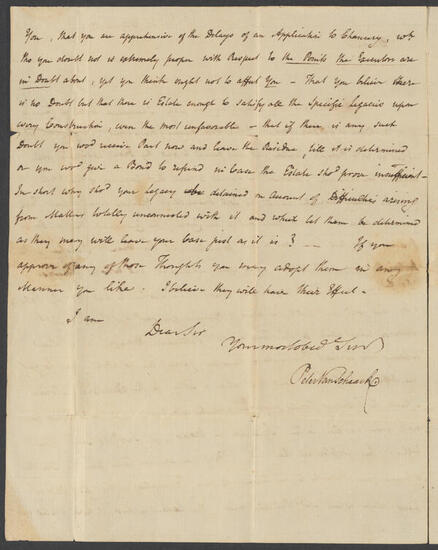 You, that you are apprehensive of the Delays of an Application to Chancery, wch
tho you doubt not is extremely proper with Respect to the Points the Executors are
in Doubt about, yet you think ought not to affect you - That you believe there
is no Doubt but that there is Estate enough to satisfy all the Specific Legacies upon
every Construction, even the most unfavorable - that if there is any such
Doubt you wod receive Part now and leave the Residue, till it is determined
or you wod give a Bond to refund in Case the Estate shod prove insufficient -
In short why shod your Legacy be detained on Account of Difficulties arising
from Matters totally unconnected with it and which let them be determined
as they may will leave your Case just as it is? - If you
approve of any of those Thoughts you may adopt them in any
Manner you like. I believe they will have their Effect -
I am
Dear Sir
Your most obed Serv
Peter Van Schaack